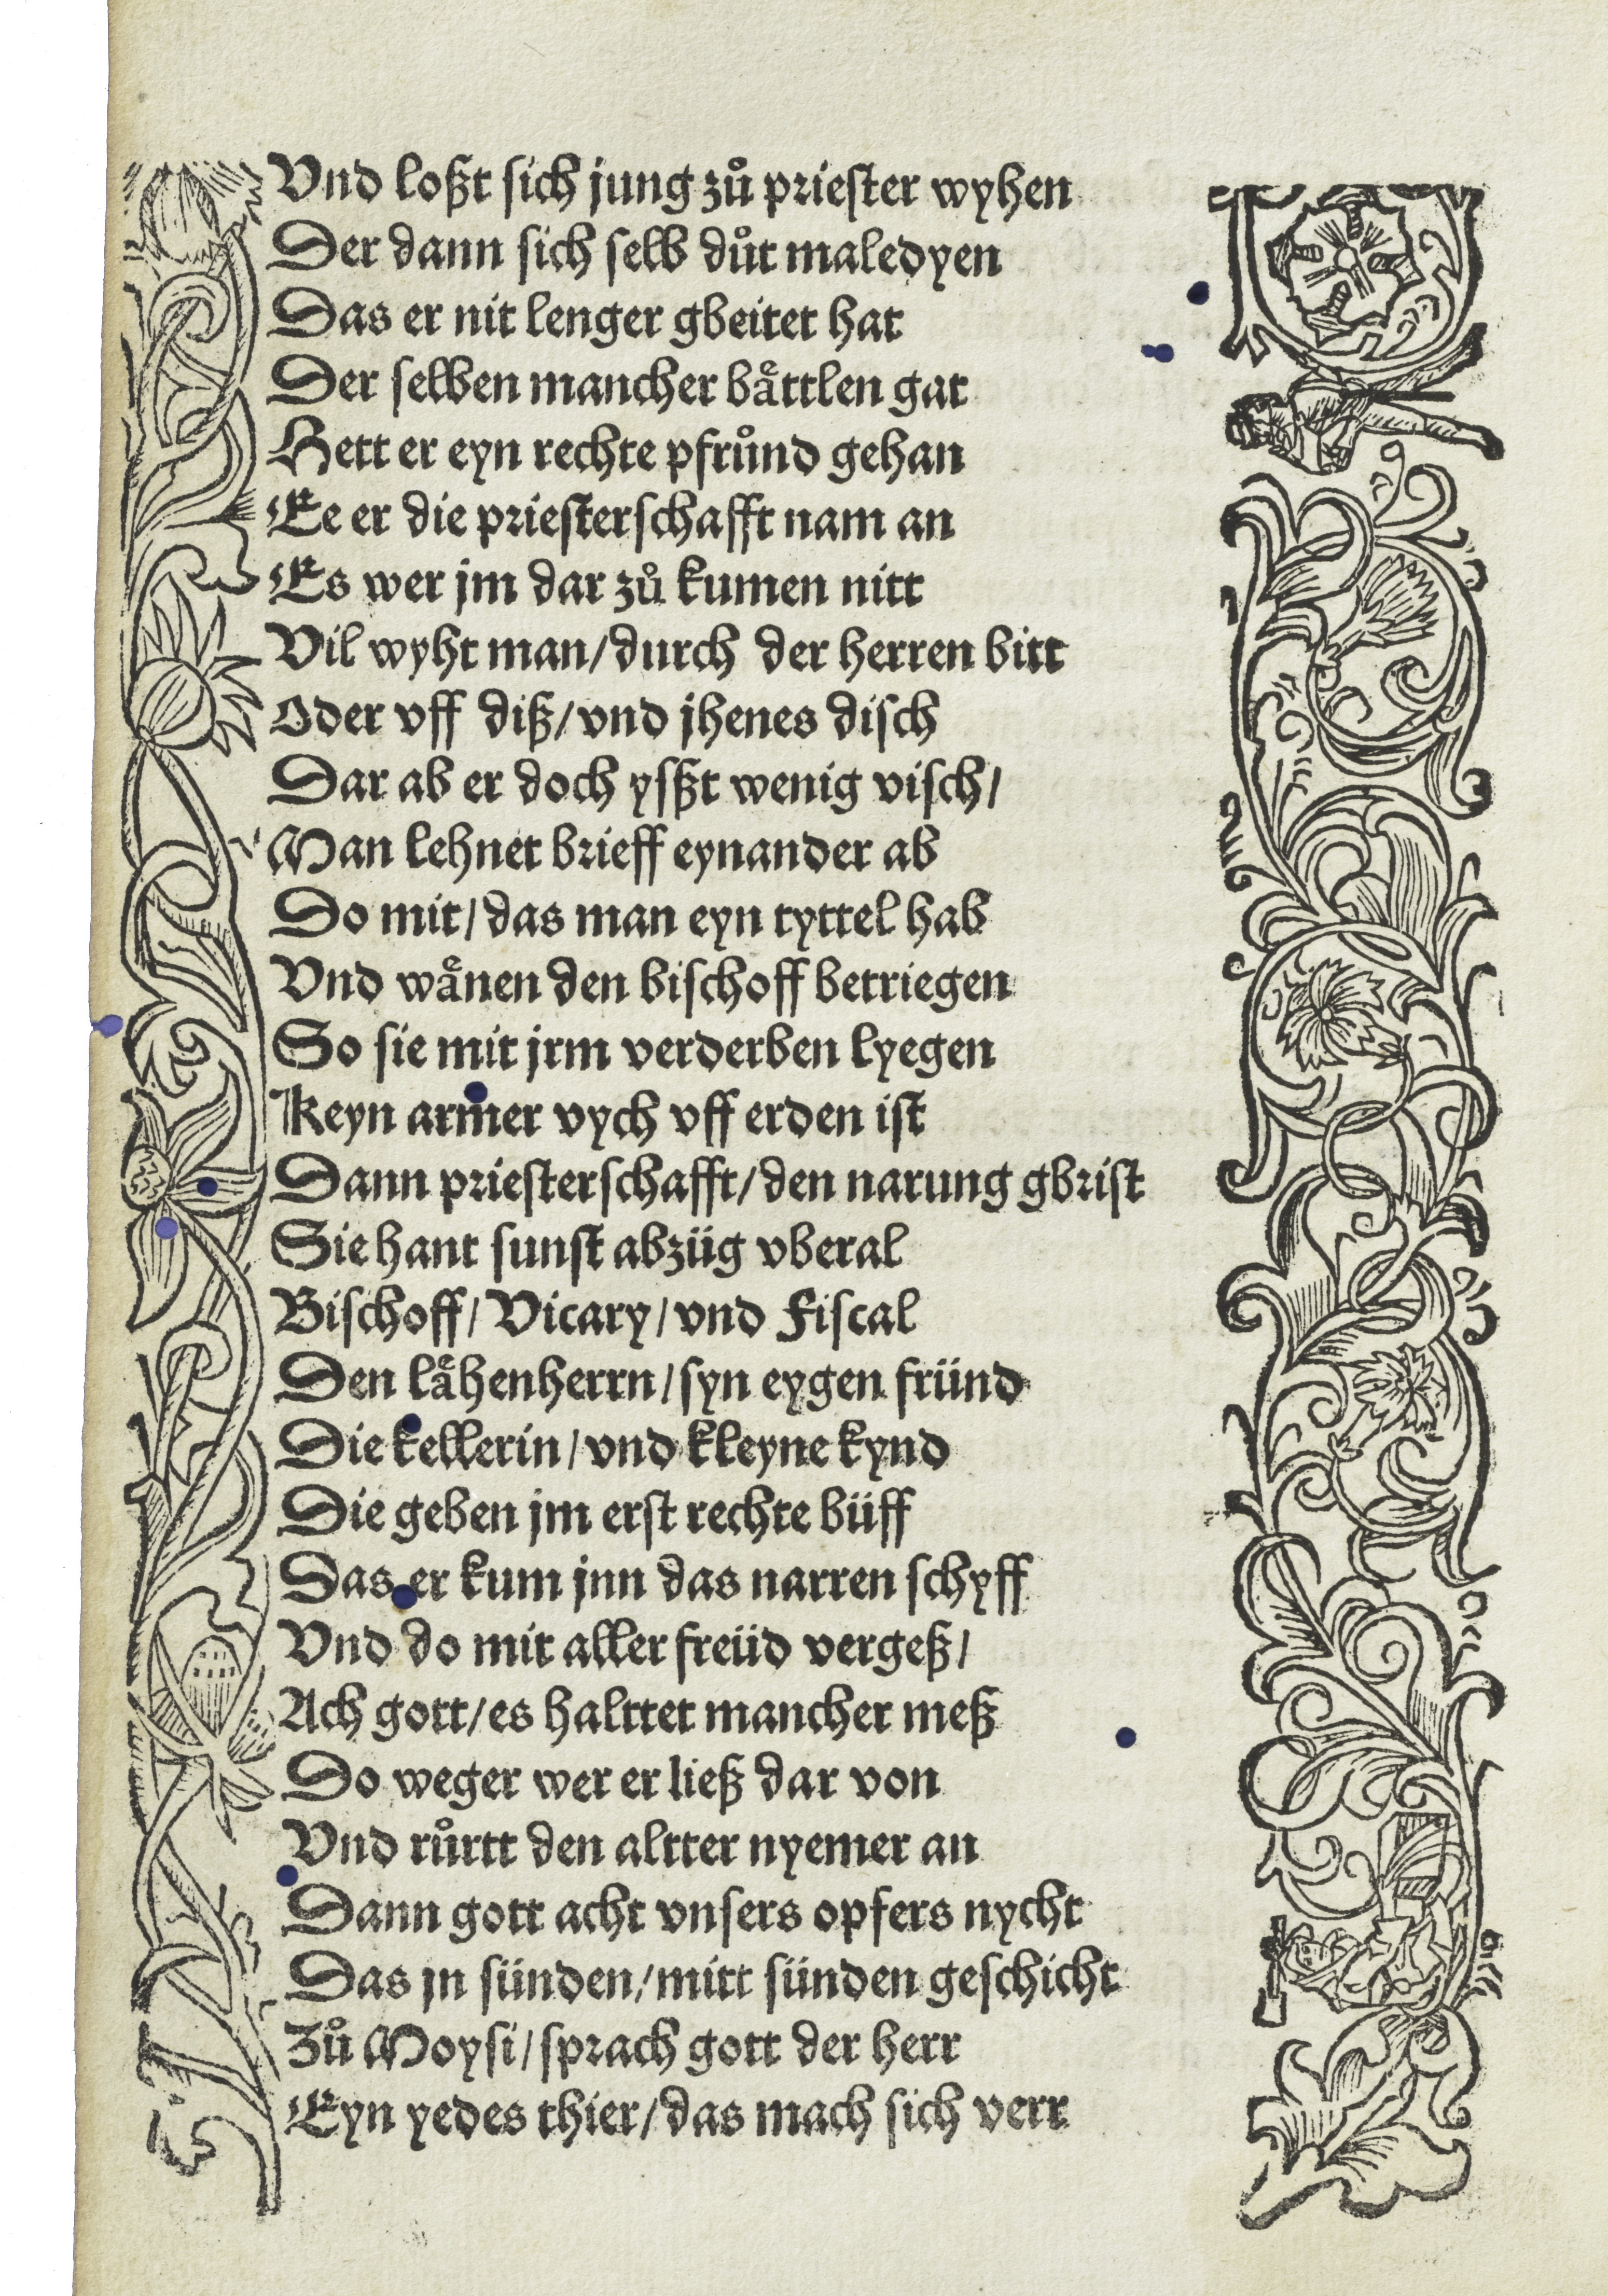 Vnd loßt sich jung zů priester wyhen
Der dann sich selb důt maledyen
Das er nit lenger gbeitet hat
Der selben mancher baͤttlen gat
Hett er eyn rechte pfrůnd gehan
Ee er die priesterschafft nam an
Es wer jm dar zů kumen nitt
Vil wyht man/durch der herren bitt
Oder vff diß/vnd jhenes disch
Dar ab er doch yſßt wenig visch/
Man lehnet brieff eynander ab
Do mit/das man eyn tyttel hab
Vnd waͤnen den bischoff betriegen
So sie mit jrm verderben lyegen
Keyn armer vych vff erden ist
Dann priesterschafft/den narung gbrist
Sie hant sunst abzüg vberal
Bischoff/Vicary/vnd Fiscal
Den laͤhenherrn/syn eygen fründ
Die kellerin/vnd kleyne kynd
Die geben jm erst rechte büff
Das er kum jnn das narren schyff
Vnd do mit aller freüd vergeß/
Ach gott/es halttet mancher meß
Do weger wer er ließ dar von
Vnd růrtt den altter nyemer an
Dann gott acht vnsers opfers nycht
Das jn sünden/mitt sünden geschicht
Zů Moysi/sprach gott der herr
Eyn yedes thier/das mach sich verr